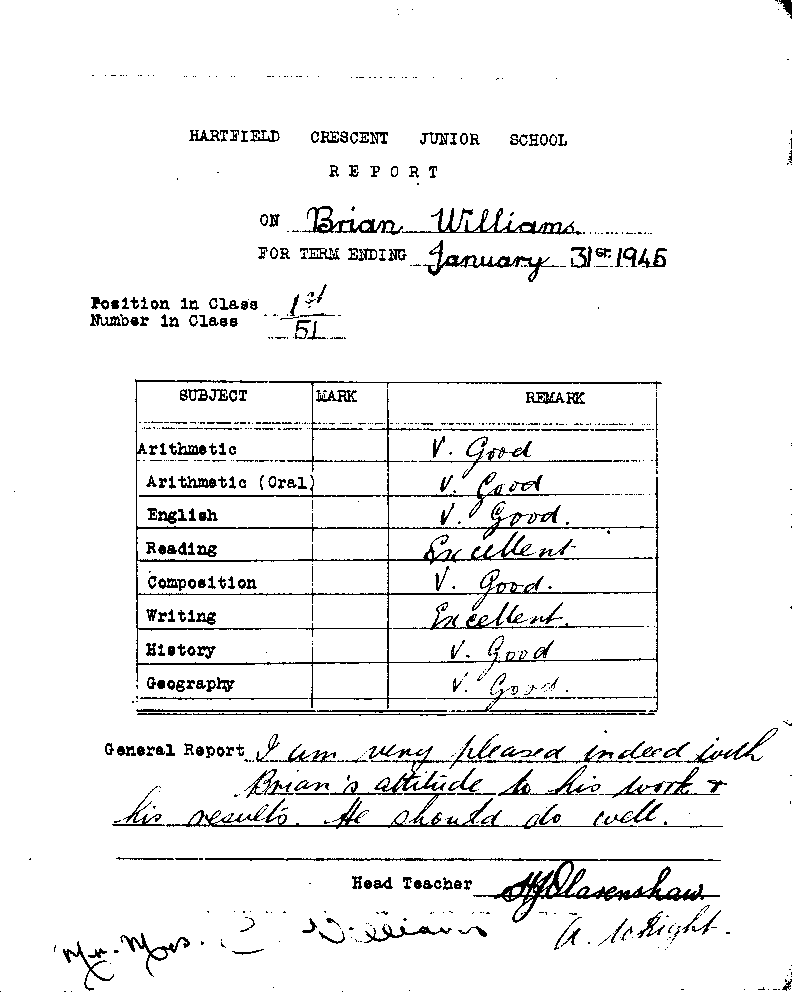 HARTFIELD CRESCENT JUNIOR SCHOOL
REPORT
ON Brian Williams
FOR TERM ENDING January 31st 1946
Position in Class 1st
Number in Class 51
SUBJECT MARK REMARK
Arithmetic V. Good
Arithmetic (Oral) V. Good
English V. Good.
Reading Excellent
Composition V. Good.
Writing Excellent.
History V. Good
Geography V. Good.
General Report I am very pleased indeed with
Brian's attitude to his work &
his results. He should do well.
Head Teacher
Mr. Mrs. Williams